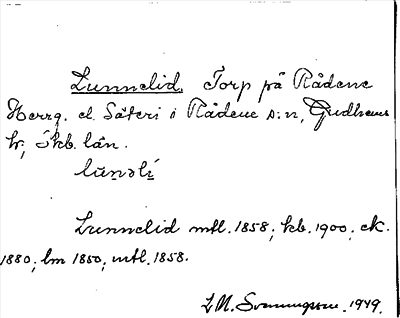 Lunnelid. Torp på Rådene
Herrg. el. Säteri i Rådene s:n, Gudhems
hr, Skb. län.
lùnəlí
Lunnelid mtl. 1858; kb. 1900; ek.
1880; lm 1850; mtl. 1858.
Svenungsson. 1949.